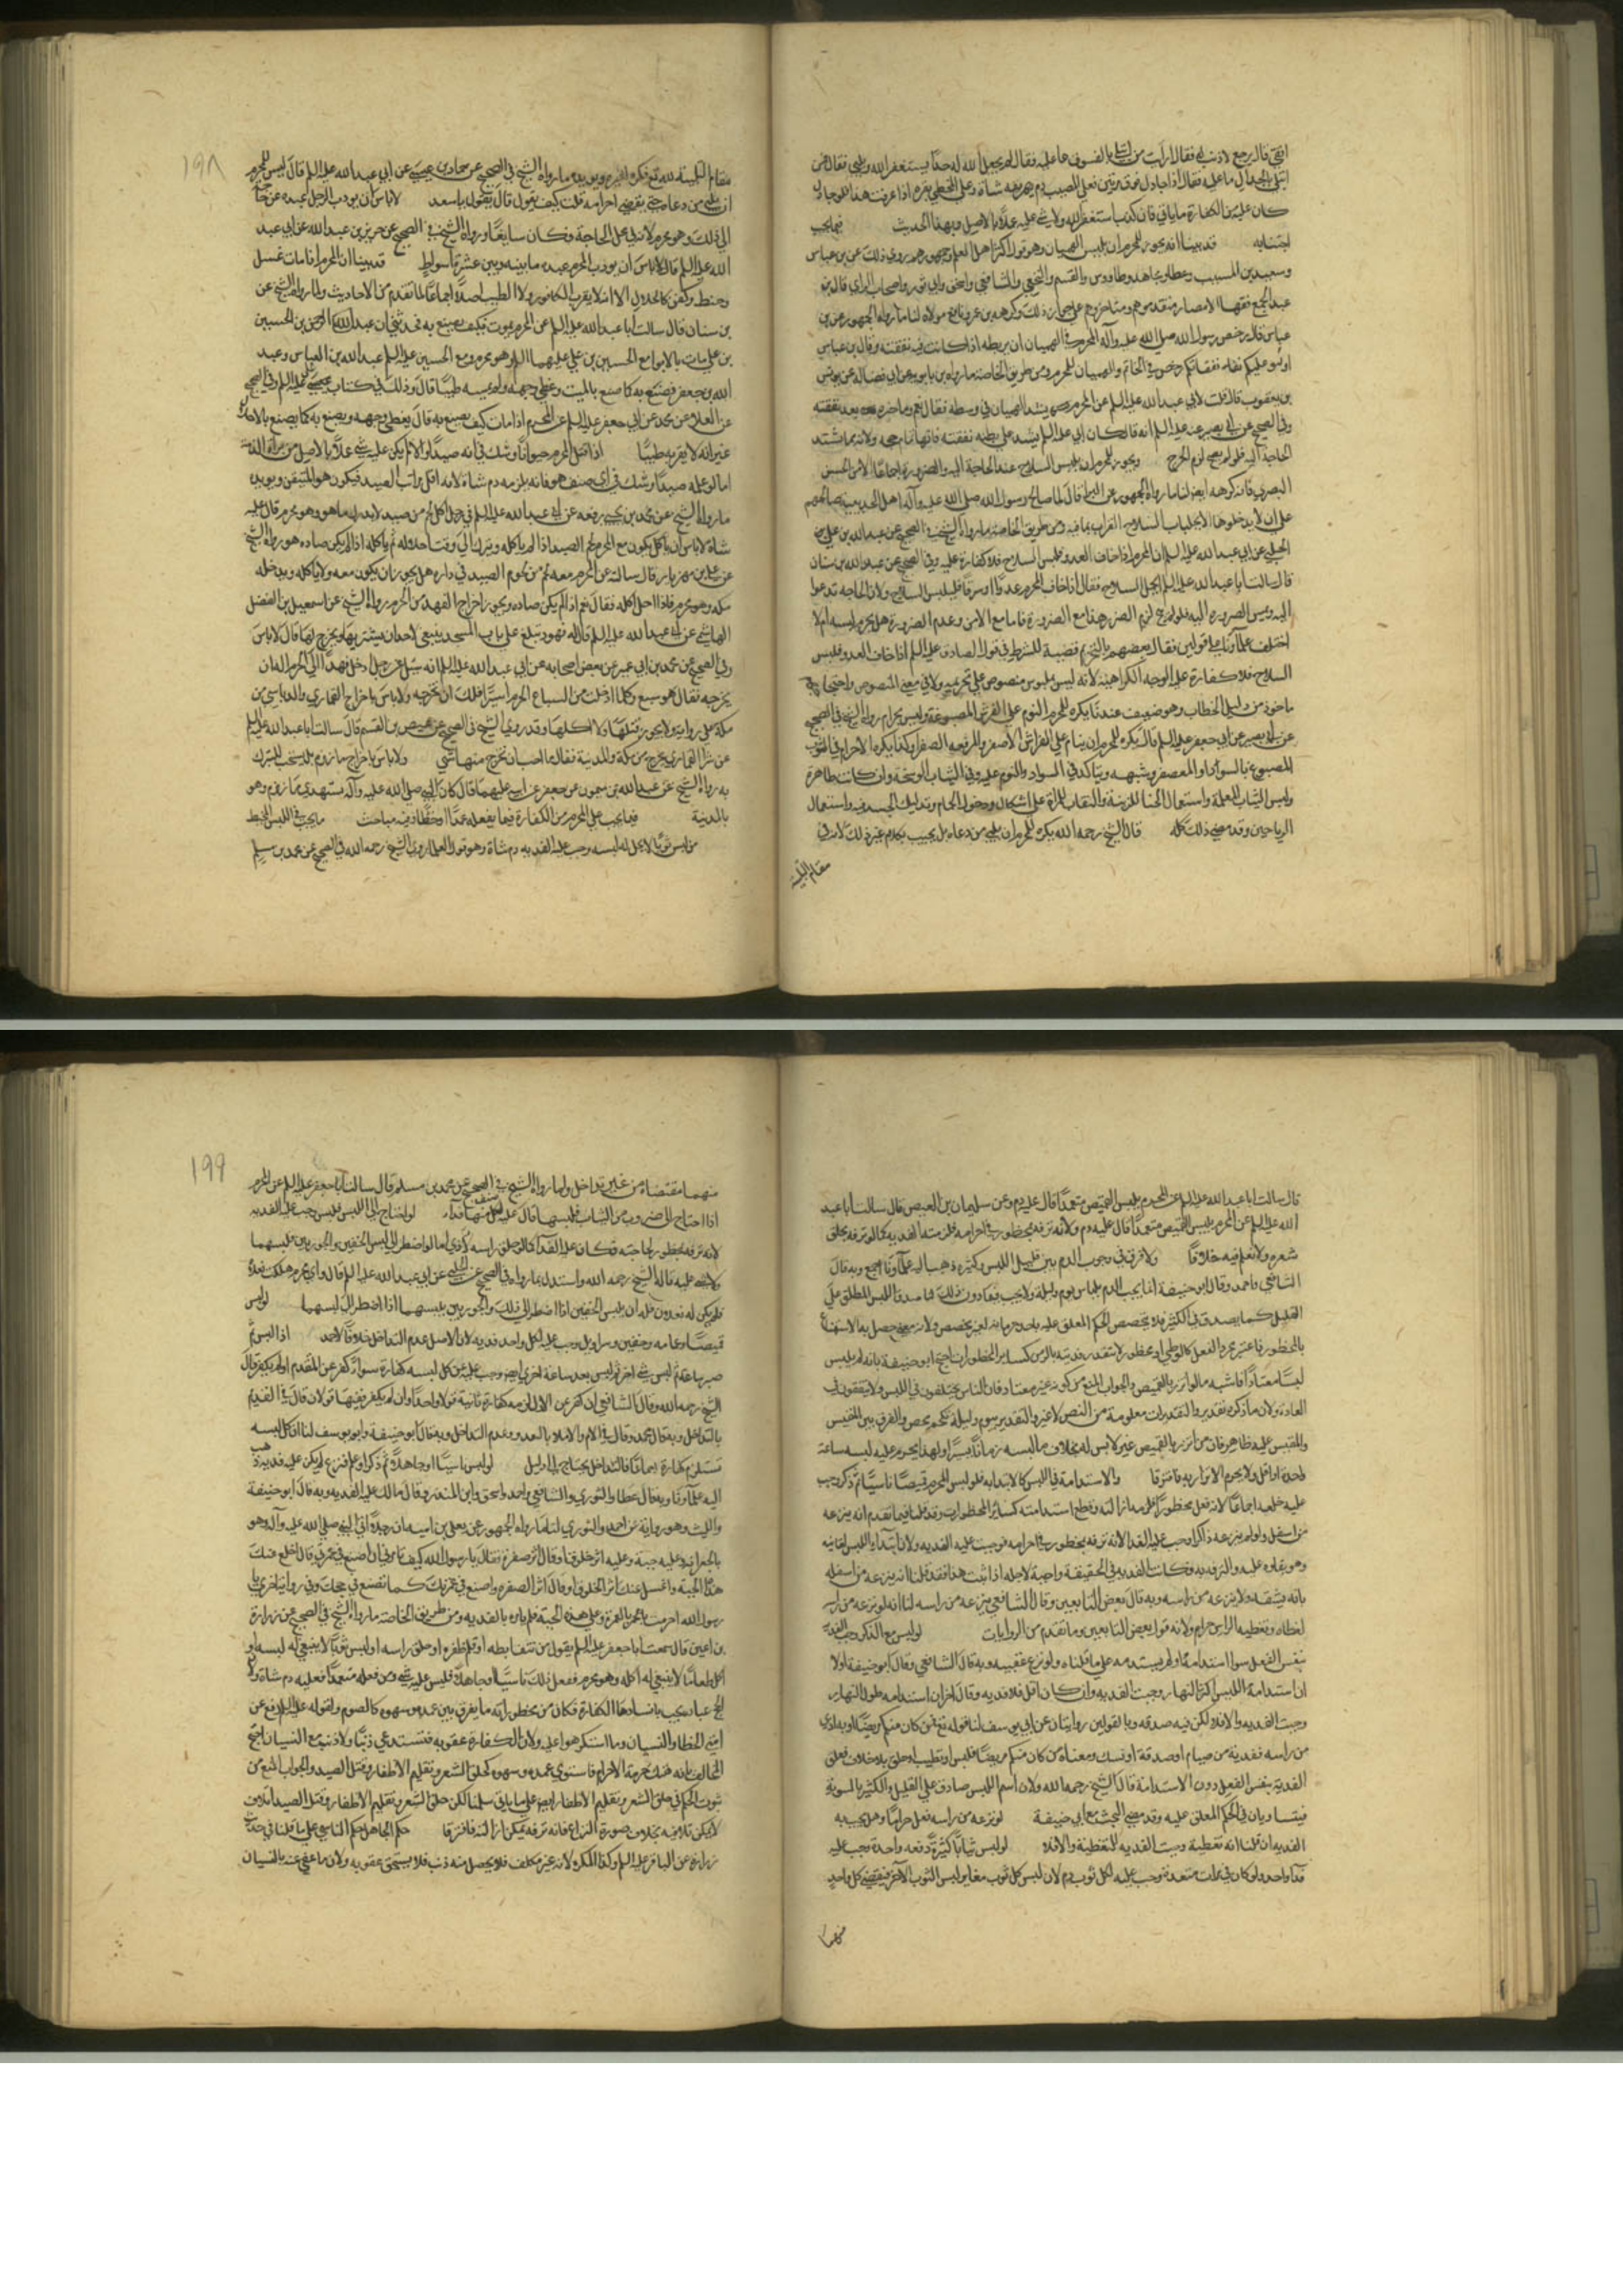 اتقى قال يرجع لا ذنب له فقال ارايت من ابتلى بالفسوق ما عليه فقال لم يجعل الله له حدا يستغفر الله ويلبي فقال فمن
ابتلى بالجدال ما عليه فقال اذا جادل فوق مرتين فعلى المصيب دم يهريقه شاة وعلى المخطي بقرة اذا عرفت هذا فلو جادل
كان عليه من الكفارة ما ياتي فان كذب استغفر الله ولا شي عليه عملا بالاصل وبهذا الحديث فيما يجب
اجتنابه قد بينا انه يجوز للمحرم ان يلبس الهميان وهو قول اكثر اهل العلم وجمهورهم روي ذلك عن بن عباس
وسعيد بن المسيب وعطا ومجاهد وطاووس والقسم والنخعي والشافعي واسحق وابي ثور واصحاب الراي قال بن
عبد البر اجمع فقهاء الامصار متقدموهم ومتاخروهم على جواز ذلك وكرهه بن عمر ونافع مولاه لنا ما رواه الجمهور عن بن
عباس قال رخص رسول الله صلى الله عليه وآله للمحرم في الهميان ان يربطه اذا كانت فيه نفقته وقال بن عباس
اوثقوا عليكم نفقاتكم ورخص في الخاتم والهميان للمحرم ومن طريق الخاصة ما رواه بن بابويه عن ابي فضالة عن يونس
بن يعقوب قال قلت لابي عبد الله عليه السلم عن المحرم يشد الهميان في وسطه فقال نعم وما خيره بعد نفقته
وفي الصحيح عن ابي بصير عنه عليه السلم انه قال كان ابي عليه السلم يشد على بطنه نفقته فانها تمام حجه ولانه مما يشتد
الحاجة اليه فلو لم يصح لزم الحرج ويجوز للمحرم ان يلبس السلاح عند الحاجة اليه والضرورة اجماعا الا من الحسن
البصري فانه كرهه ايضا لنا ما رواه الجمهور عن البرا قال لما صالح رسول الله صلى الله عليه وآله اهل الحديبية صالحهم
على ان لا يدخلوها الا بجلبان السلاح القراب بما فيه ومن طريق الخاصة ما رواه الشيخ في الصحيح عن عبيد الله بن علي
الحلبي عن ابي عبد الله عليه السلم ان المحرم اذا خاف العدو فلبس السلاح فلا كفارة عليه وفي الصحيح عن عبد الله بن سنان
قال سالت ابا عبد الله عليه السلم ايحمل السلاح فقال اذا خاف المحرم عدوا او سرقا فليلبس السلاح ولان الحاجة تدعوا
السلاح فلا كفارة عليه الوجه الكراهية لانه ليس ملبوس منصوص على تحريمه ولا في معنى المنصوص
ماخوذ من دليل الخطاب وهو ضعيف عندنا يكره للمحرم النوم على الفرش المصبوغة وليس بحرام رواه الشيخ في الصحيح
عن ابي بصير عن ابي جعفر عليه السلم قال يكره للمحرم ان ينام على الفراش الاصفر والمرفقة الصفراء وكذا يكره الاحرام في الثوب
المصبوغ بالسواد او المعصفر وشبهه ويتاكد في السواد والنوم عليه وفي الثياب الوسخة وان كانت طاهرة
ولبس الثياب المعلمة واستعمال الحنا للزينة والنقاب للمراة على اشكال ودخول الحمام وتدليك الجسد فيه واستعمال
الرياحين وقد مضى ذلك كله قال الشيخ رحمه الله يكره للمحرم ان يلبي من دعاه بل يجيب بكلام غير ذلك لانه في
مقام التلبية
١٩٨
مقام التلبية لله تع فكره لغيره ويويده ما رواه الشيخ في الصحيح عن حماد بن عيسى عن ابي عبد الله عليه السلم قال ليس للمحرم
ان يلبي من دعاه حتى يقضي احرامه قلت كيف يقول قال يقول يا سعد لا باس ان يودب الرجل عبده عن
الى ذلك وهو محرم لانه في محل الحاجة فكان سايغا ورواه الشيخ في الصحيح عن حريز بن عبد الله عن ابي عبد
الله عليه السلم قال لا باس ان يودب المحرم عبده ما بينه وبين عشرة اسواط قد بينا ان المحرم اذا مات غسل
وحنط وكفن كالحلال الا انه لا يقرب الكافور ولا الطيب اصلا اجماعا لما تقدم من الاحاديث ولما رواه الشيخ عن
بن سنان قال سالت ابا عبد الله عليه السلم عن المحرم يموت فكيف يصنع به فحدثني ان عبد الرحمن بن الحسين
بن علي مات بالابوا مع الحسين بن علي عليهما السلم وهو محرم ومع الحسين عليه السلم عبد الله بن العباس وعبد
الله بن جعفر فصنع به كما صنع بالميت وغطى وجهه ولم يمسه طيبا قال وذلك في كتاب علي عليه السلم وفي الصحيح
عن العلا عن محمد عن ابي جعفر عليه السلم عن المحرم اذا مات كيف يصنع به قال يغطى وجهه ويصنع به كما يصنع بالحلال
غير انه لا يقربه طيبا اذا قتل المحرم حيوانا وشك في انه صيد او لا لم يكن عليه شي عملا بالاصل من براة الذمة
اما لو علمه صيدا وشك في اي صنف هو فانه يلزمه دم شاة لانه اقل مراتب الصيد فيكون هو المتيقن ويويده
شاة لا باس ان ياكل يكون مع المحرم لحم الصيد اذا لم ياكله ويتركه الى وقت احلاله ثم ياكله اذا لم يكن صاده هو رواه الشيخ
عن علي بن مهزيار قال سالته عن المحرم معه لحم من لحوم الصيد في داره هل يجوز ان يكون معه ولا ياكله ويدخله
مكه وهو محرم فاذا احل اكله فقال نعم اذا لم يكن صاده ويجوز اخراج الفهد من الحرم رواه الشيخ عن اسمعيل بن الفضل
الهاشمي عن ابي عبد الله عليه السلم قال قلت له فهود تباع على باب المسجد ينبغي لاحد ان يشتريها ويخرج بها قال لا باس
وفي الصحيح عن محمد بن ابي عمير عن بعض اصحابه عن ابي عبد الله عليه السلم انه سئل عن رجل ادخل فهدا الى الحرم اله ان
يخرجه فقال هو سبع وكلما ادخلت من السباع الحرم اسيرا فلك ان تخرجه ولا باس باخراج القماري والدباسي من
مكة على رواية ولا يجوز قتلها ولا اكلها وقد روى الشيخ في الصحيح عن عيص بن القسم قال سالت ابا عبد الله عليه السلم
عن شراء القماري يخرج من مكة والمدينة فقال ما احب ان يخرج منها شي ولا باس باخراج ماء زمزم بل يستحب للتبرك
به رواه الشيخ عن عبد الله بن ميمون عن جعفر عن ابيه عليهما قال كان النبي صلى الله عليه وآله يستهدي ماء زمزم وهو
بالمدينة فيما يجب على المحرم من الكفارة فيما يفعله عمدا او خطا وفيه مباحث ما يجب في اللبس المخيط
من لبس ثوبا لا يحل له لبسه وجب عليه الفدية دم شاة وهو قول العلما روى الشيخ رحمه الله في الصحيح عن محمد بن مسلم
قال سالت ابا عبد الله عليه السلم عن المحرم يلبس القميص متعمدا قال عليه دم وعن سليمان بن العيص قال سالت ابا عبد
الله عليه السلم عن المحرم يلبس القميص متعمدا قال عليه دم ولانه ترفه بمحظور في احرامه فلزمته الفدية كما لو ترفه بحلق
شعره ولا نعلم فيه خلافا ولا فرق في وجوب الدم بين قليل اللبس وكثيره ذهب اليه علماونا اجمع وبه قال
الشافعي واحمد وقال ابو حنيفة انما يجب الدم بلباس يوم وليلة ولا يجب فيما دون ذلك لنا صدق اللبس المطلق على
القليل كما يصدق في الكثير
لبسا معتادا فاشبه ما لو اتزر بالقميص والجواب المنع من كونه غير معتاد فان الناس يختلفون في اللبس ولا يتفقون في
العادة ولان ما ذكره تقدير والتقديرات معلومة من النص لا غير والتقدير بيوم وليلة تحكم محض والفرق بين المقيس
والمقيس عليه ظاهر فان من اتزر بالقميص غير لابس له بخلاف ما لبسه زمانا يسيرا ولهذا يحرم عليه لبسه ساعة
واحدة او اقل ولا يحرم الاتزار به فافترقا والاستدامة في اللبس كالابتدا به فلو لبس المحرم قميصا ناسيا ثم ذكر وجب
عليه خلعه اجماعا لانه فعل محظور فلزمه ازالته وقطع استدامته كسائر المحظورات وقد قلنا فيما تقدم انه ينزعه
من اسفل ولو لم ينزعه ذاكرا وجب عليه الفدا لانه ترفه بمحظور في احرامه فوجبت عليه الفدية
بانه يشقه ولا ينزعه من راسه وبه قال بعض التابعين وقال الشافعي ينزعه من راسه لنا انه لو نزعه من راسه
لغطاه وتغطيه الراس حرام ولانه قول بعض التابعين وما تقدم من الروايات لو لبس مع الذكر وجب الفدية
بنفس الفعل سوا استدامه او لم يستدمه على ما قلناه ولو نزع عقيبه وبه قال الشافعي وقال ابو حنيفة اولا
ان استدامة اللبس اكثر النهار وجبت الفدية وان كان اقل فلا فدية وقال اخرا ان استدامه طول النهار
وجبت الفدية والا فلا لكن فيه صدقه وبالقولين روايتان عن ابي يوسف لنا قوله تع فمن كان منكم مريضا او به اذى
من راسه ففدية من صيام او صدقة او نسك ومعناه من كان منكم مريضا فلبس او تطيب او حلق بلا خلاف فعلق
الفدية بنفس الفعل دون الاستدامة قال الشيخ رحمه الله ولان اسم اللبس صادق على القليل والكثير بالسوية
فيتساويان في الحكم المعلق عليه وقد مضى البحث مع ابي حنيفة لو نزعه من راسه فعل حراما وهل يجب به
الفدية ان قلنا انه تغطية وجبت الفدية للتغطية والا فلا لو لبس ثيابا كثيرة دفعه واحدة وجب عليه
فدا واحد ولو كان في مرات متعددة وجب عليه لكل ثوب دم لان لبس كل ثوب مغاير للبس الثوب الاخر فيقتضي كل واحد
منهما
١٩٩
منهما مقتضاه من غير تداخل ولما رواه الشيخ في الصحيح عن محمد بن مسلم قال سالت ابا جعفر عليه السلم عن المحرم
اذا احتاج الى ضروب من الثياب فلبسها قال عليه لكل صنف منها فداء لو احتاج الى اللبس فلبس وجب عليه الفدية
لانه ترفه بمحظور لحاجته فكان عليه الفدا كما لو حلق راسه لاذى اما لو اضطر الى لبس الخفين والجوربين فلبسهما
ولا شي عليه قاله الشيخ رحمه الله واستدل بما رواه في الصحيح عن الحلبي عن ابي عبد الله عليه السلم قال واي محرم هلكت نعلاه
فلم يكن له نعلان فله ان يلبس الخفين اذا اضطر الى ذلك والجوربين يلبسهما اذا اضطر الى لبسهما لو لبس
قميصا وعمامة وخفين وسراويل وجب عليه لكل واحد فدية لان الاصل عدم التداخل خلافا لاحمد اذا لبس ثم
صبر ساعة ثم لبس شي اخر ثم لبس بعد ساعة اخرى ايضا وجب عليه عن كل لبسه كفارة سواء كفر عن المتقدم او لم يكفر قاله
الشيخ رحمه الله وقال الشافعي ان كفر عن الاول لزمه كفارة ثانية قولا واحدا وان لم يكفر ففيها قولان قال في القديم
بالتداخل وبه قال محمد وقال في الام والاملا بالعدد وعدم التداخل وبه قال ابو حنيفة وابو يوسف لنا ان كل لبسه
تستلزم كفارة اجماعا فالتداخل يحتاج الى دليل لو لبس ناسيا او جاهلا ثم ذكر او علم فنزع لم يكن عليه فدية ذهب
اليه علماونا وبه قال عطا والثوري والشافعي واحمد واسحق وابن المنذر وقال مالك عليه الفدية وبه قال ابو حنيفة
والليث وهو رواية عن احمد والثوري لنا ما رواه الجمهور عن يعلى بن امية ان رجلا اتى النبي صلى الله عليه وآله وهو
بالجعرانة وعليه جبة وعليه اثر خلوق او قال اثر صفرة فقال يا رسول الله كيف تامرني ان اصنع في عمرتي قال اخلع عنك
هذه الجبة واغسل عنك اثر الخلوق او قال اثر الصفرة واصنع في عمرتك كما تصنع في حجك وفي رواية اخرى يا
رسول الله احرمت بالعمرة وعلي هذه الجبة فلم يامره بالفدية ومن طريق الخاصة ما رواه الشيخ في الصحيح عن زرارة
بن اعين قال سمعت ابا جعفر عليه السلم يقول من نتف ابطه او قلم ظفره او حلق راسه او لبس ثوبا لا ينبغي له لبسه او
اكل طعاما لا ينبغي له اكله وهو محرم ففعل ذلك ناسيا او جاهلا فليس عليه شي ومن فعله متعمدا فعليه دم شاة ولان
الحج عبادة يجب بافسادها الكفارة فكان من محظوراته ما يفرق بين عمده وسهوه كالصوم ولقوله عليه السلم رفع عن
امتي الخطا والنسيان وما استكرهوا عليه ولان الكفارة عقوبة فتستدعي ذنبا ولا ذنب مع النسيان احتج
المخالف بانه هتك حرمة الاحرام فاستوى عمده وسهوه كحلق الشعر وتقليم الاظفار وقتل الصيد والجواب المنع من
ثبوت الحكم في حلق الشعر وتقليم الاظفار ايضا على ما ياتي سلمنا لكن حلق الشعر وتقليم الاظفار وقتل الصيد اتلاف
لا يمكن تلافيه بخلاف صورة النزاع فانه ترفه يمكن ازالته فافترقا حكم الجاهل حكم الناسي على ما قلنا في حديث
زرارة عن الباقر عليه السلم وكذا المكره لانه غير مكلف فلا يحصل منه ذنب فلا يستحق عقوبة ولان ما عفي عنه بالنسيان